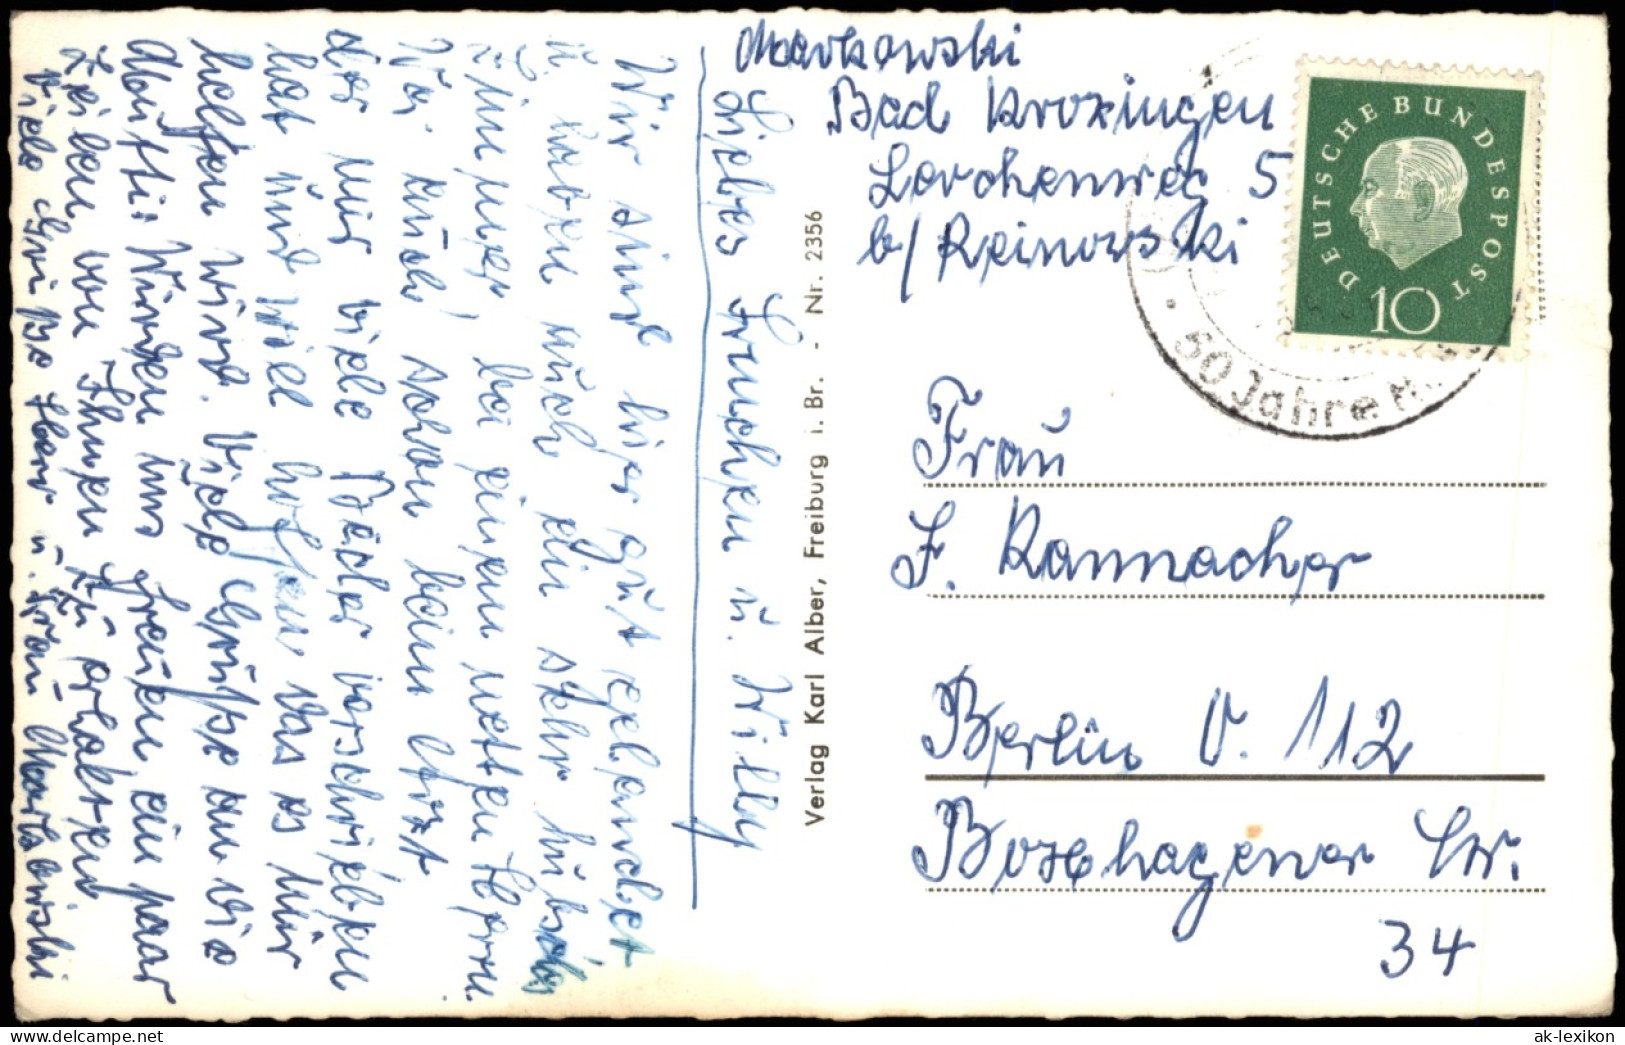 Markowski
Bad Krozingen
Lerchenweg 5
b/ Reinowski
DEUTSCHE BUNDESPOST
10
50 Jahre
Frau
F. Rannacher
Berlin O. 112
Boxhagener Str.
34
Verlag Karl Alber, Freiburg i. Br. - Nr. 2356
Liebes Frauchen u. Willy
Wir sind hier gut gelandet
u. haben auch ein sehr hübsches
Zimmer, bei einem netten Herrn.
War auch schon beim Arzt
der mir viele Bäder verschrieben
hat und wir hoffen das es mir
helfen wird. Viele Grüße an die
Mutti. Würden uns freuen ein paar
Zeilen von Ihnen zu erhalten.
Viele Grüße Herr u. Frau Markowski
ak-lexikon